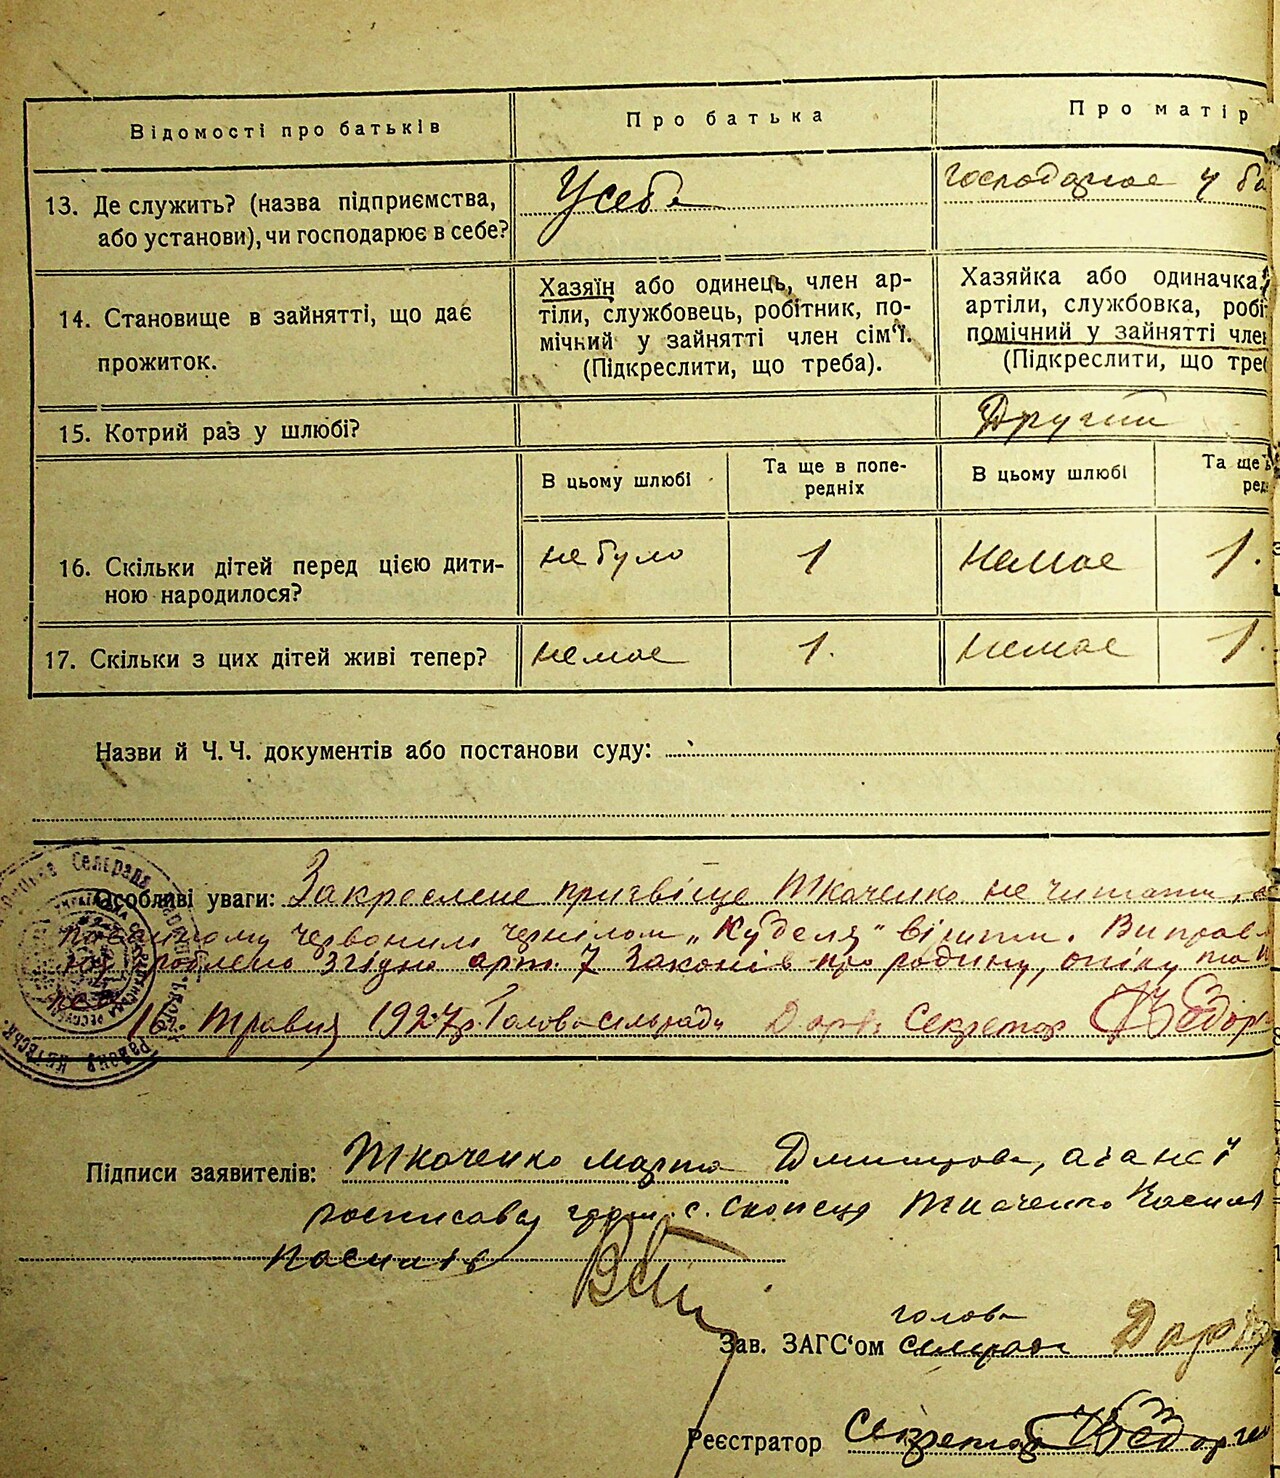 Відомості про батьків
Про батька
Про матір
13. Де служить? (назва підприємства,
або установи), чи господарює в себе?
У себе
господарює у ба
14. Становище в зайнятті, що дає
прожиток.
Хазяїн або одинець, член ар-
тіли, службовець, робітник, по-
мічний у зайнятті член сім'ї.
(Підкреслити, що треба).
Хазяйка або одиначка,
артіли, службовка, робі
помічний у зайнятті член
(Підкреслити, що треб
15. Котрий раз у шлюбі?
Другий
В цьому шлюбі
Та ще в попе-
редніх
В цьому шлюбі
Та ще в
ред
16. Скільки дітей перед цією дити-
ною народилося?
не було
1
немає
1.
17. Скільки з цих дітей живі тепер?
немає
1.
немає
1.
Назви й Ч. Ч. документів або постанови суду:
Особливі уваги: Закреслене призвіще Ткаченко не читати,
червоним чернілом „Куделя" вірити. Виправл
зроблено згідно арт. 7 Законів про родину, опіку та
16/ Травня 1927р. Голова сільради Секретар
Підписи заявителів: Ткаченко Марта Дмитрова, а за неї
росписався гром. с. Скопець Ткаченко
Василів
голова
Зав. ЗАГС'ом сельради
Реєстратор Секретар